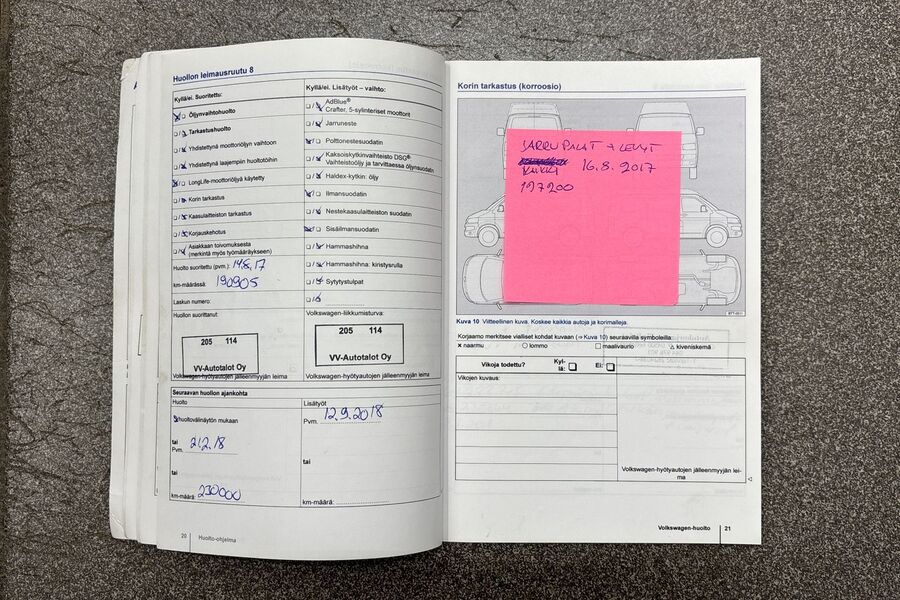 Huollon leimausruutu 8
Kyllä/ei. Suoritettu:
Öljynvaihtohuolto
Tarkastushuolto
Yhdistettynä moottoriöljyn vaihtoon
Yhdistettynä laajempiin huoltotöihin
LongLife-moottoriöljyä käytetty
Korin tarkastus
Kaasulaitteiston tarkastus
Korjauskehotus
Asiakkaan toivomuksesta
(merkintä myös työmääräykseen)
Huolto suoritettu (pvm.): 14.8.17
km-määrässä: 190905
Laskun numero:
Huollon suorittanut:
205 114
VV-Autotalot Oy
Volkswagen-hyötyautojen jälleenmyyjän leima
Kyllä/ei. Lisätyöt – vaihto:
AdBlue®
Crafter, 5-sylinteriset moottorit
Jarruneste
Polttonestesuodatin
Kaksoiskytkinvaihteisto DSG®
Vaihteistoöljy ja tarvittaessa öljynsuodatin
Haldex-kytkin: öljy
Ilmansuodatin
Nestekaasulaitteiston suodatin
Sisäilmansuodatin
Hammashihna
Hammashihna: kiristysrulla
Sytytystulpat
Volkswagen-liikkumisturva:
205 114
VV-Autotalot Oy
Volkswagen-hyötyautojen jälleenmyyjän leima
Seuraavan huollon ajankohta
Huolto
huoltovälinäytön mukaan
tai
Pvm. 21.2.18
tai
km-määrä: 230000
Lisätyöt
Pvm. 12.9.2018
tai
km-määrä:
20 Huolto-ohjelma
Korin tarkastus (korroosio)
JARRUPALAT + LEVYT
KAIKKI 16.8.2017
197200
Kuva 10 Viitteellinen kuva. Koskee kaikkia autoja ja korimalleja.
Korjaamo merkitsee vialliset kohdat kuvaan (⇒ Kuva 10) seuraavilla symboleilla:
× naarmu ○ lommo □ maalivaurio △ kiveniskemä
Vikoja todettu? Kyl-
lä: Ei:
Vikojen kuvaus:
Volkswagen-hyötyautojen jälleenmyyjän lei-
ma
Volkswagen-huolto 21